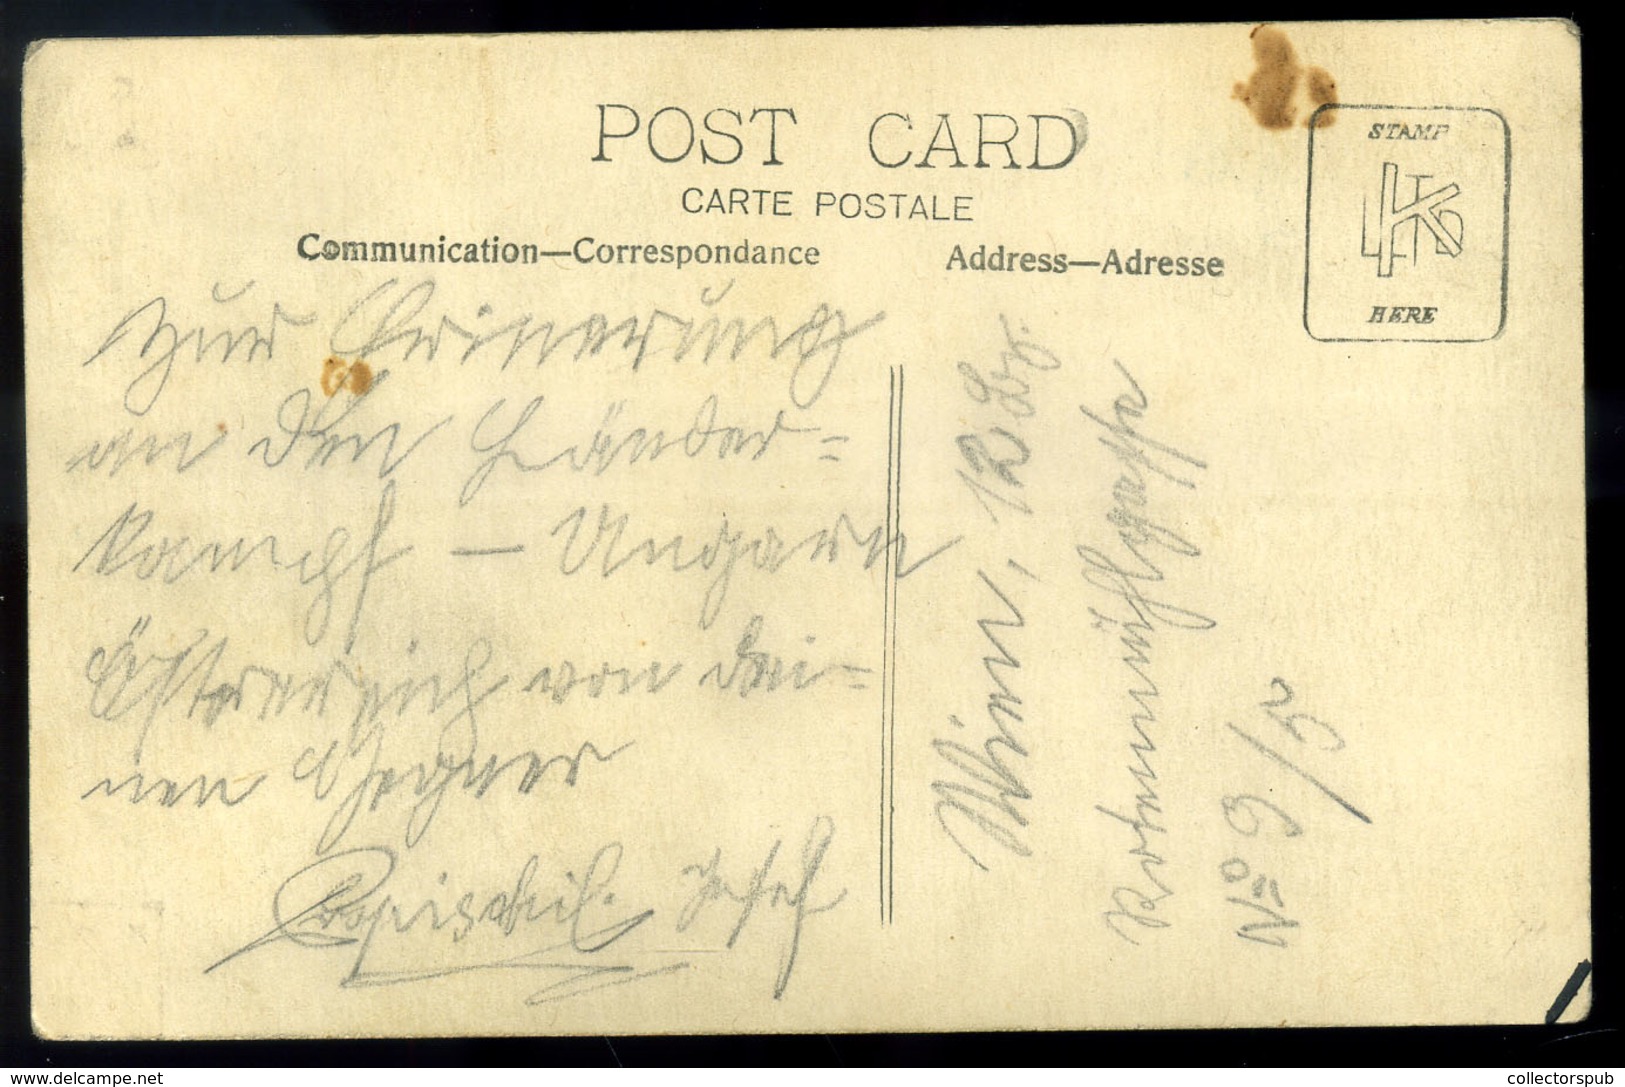 POST CARD
CARTE POSTALE
Communication—Correspondance
Address—Adresse
STAMP
HERE
Zur Erinerung
an den Länder=
kampf – Ungarn
Östereich von dei=
nen Gegner
Pospischil. Josef
Wien, 12 Bz.
Rotenmühlgasse
No 9/5
www.delcampe.net
collectorspub